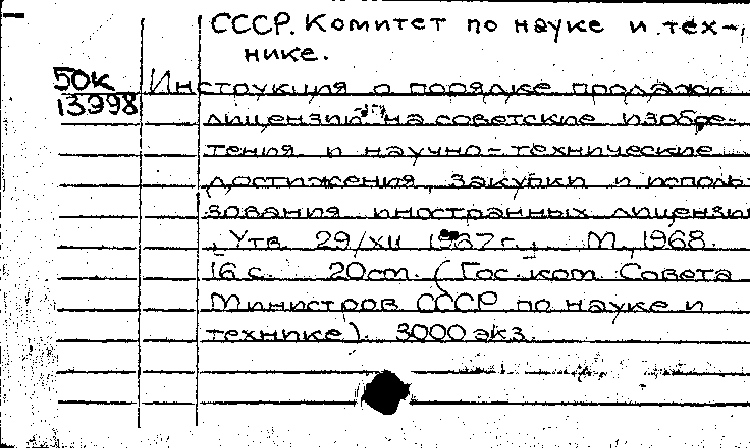 СССР. Комитет по науке и тех-
нике.
50к Инструкция о порядке продажи
13998 лицензий на советские изобре-
тения и научно-технические
достижения, закупки и исполь-
зования иностранных лицензий
[Утв. 29/XII 1967 г.] М., 1968.
16 с. 20 cm. (Гос. ком. Совета
Министров СССР по науке и
технике). 3000 экз.